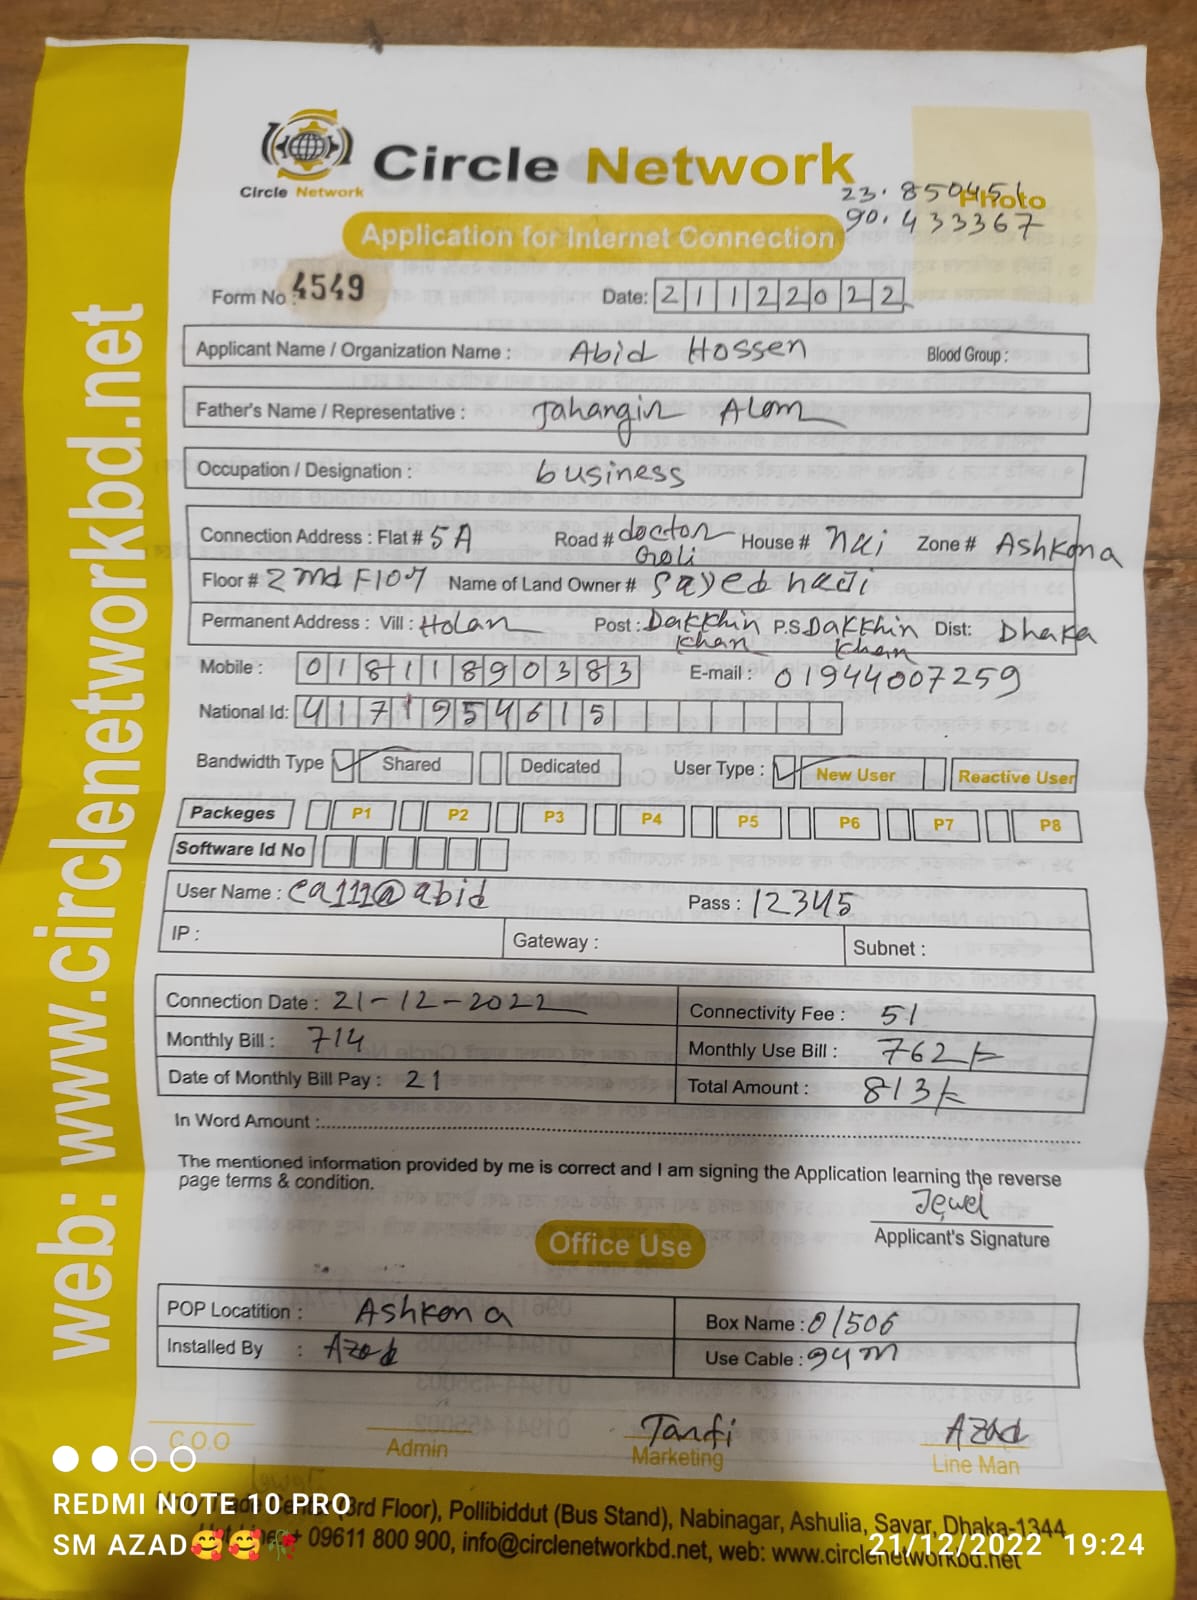 Circle Network
Circle Network
23.850451
Photo
90.433367
Application for Internet Connection
Form No : 4549 Date: 21122022
Applicant Name / Organization Name : Abid Hossen Blood Group :
Father's Name / Representative : Jahangir Alom
Occupation / Designation : business
Connection Address : Flat # 5A Road # doctor Goli House # Zone # Ashkona
Floor # 2nd Floor Name of Land Owner # Sayed hadi
Permanent Address : Vill : Holan Post : Dakkhin khan P.S Dakkhin khan Dist: Dhaka
Mobile : 01811890383 E-mail : 01944007259
National Id: 4171954615
Bandwidth Type Shared Dedicated User Type : New User Reactive User
Packeges P1 P2 P3 P4 P5 P6 P7 P8
Software Id No
User Name : @abid Pass : 12345
IP : Gateway : Subnet :
Connection Date : 21-12-2022 Connectivity Fee : 51
Monthly Bill : 714 Monthly Use Bill : 762/=
Date of Monthly Bill Pay : 21 Total Amount : 813/=
In Word Amount :
The mentioned information provided by me is correct and I am signing the Application learning the reverse
page terms & condition.
Jewel
Applicant's Signature
Office Use
POP Locatition : Ashkona Box Name : 01506
Installed By : Azad Use Cable : 94m
Tanfi Azad
C.O.O Admin Marketing Line Man
(3rd Floor), Pollibiddut (Bus Stand), Nabinagar, Ashulia, Savar, Dhaka-1344
09611 800 900, info@circlenetworkbd.net, web: www.circlenetworkbd.net
web: www.circlenetworkbd.net
REDMI NOTE 10 PRO
SM AZAD🥰🥰🥀 21/12/2022 19:24